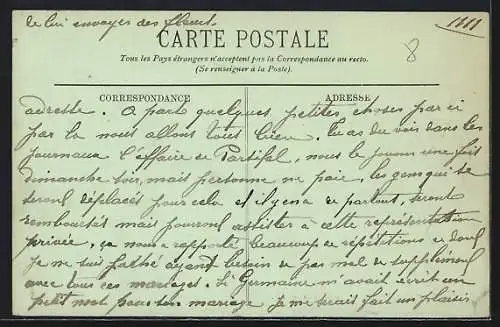 de lui envoyer des fleurs.
1111
8
CARTE POSTALE
Tous les Pays étrangers n'acceptent pas la Correspondance au recto.
(Se renseigner à la Poste).
CORRESPONDANCE
ADRESSE
adresse. A part quelques petites choses par ci
par là nous allons tous bien. tu as du voir dans les
journaux l'affaire de Parsifal, nous le jouons une fois
dimanche soir, mais personne ne paie, les gens qui se
seront déplacés pour cela et il y en a de partout, seront
remboursés mais pourront assister à cette représentation
privée, ça nous a rapporté beaucoup de répétitions et dont
je ne suis fâché ayant besoin de pas mal de supplément
avec tous ces mariages. Si Germaine m'avait écrit un
petit mot pour son mariage je me serais fait un plaisir